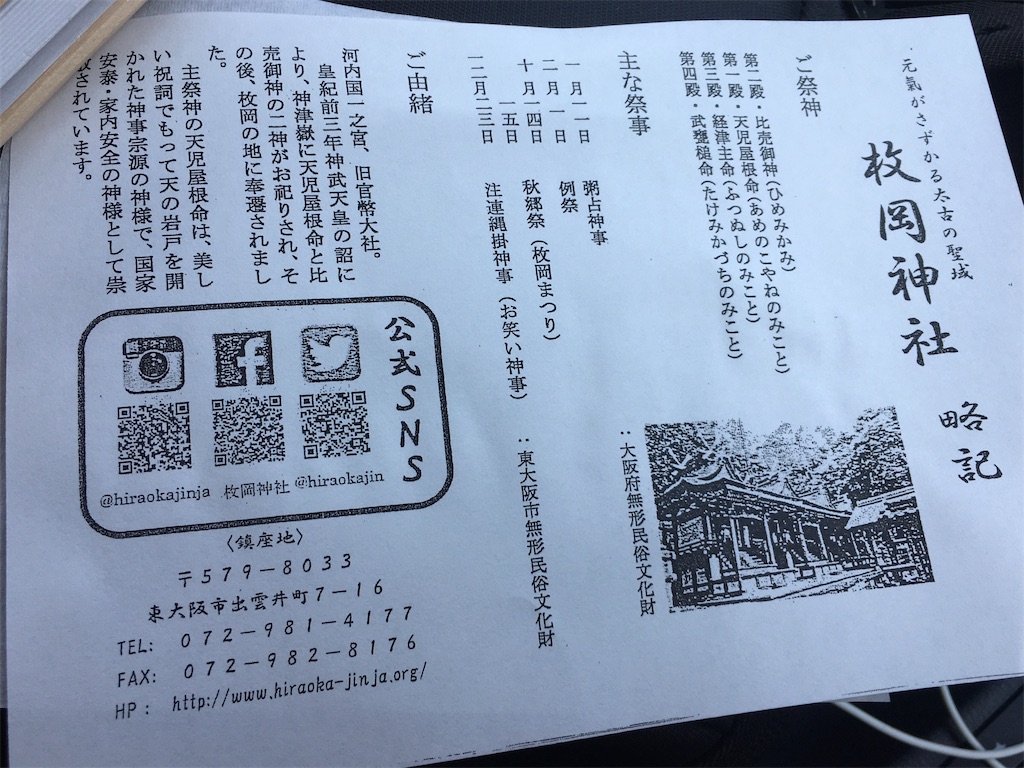 元氣がさずかる太古の聖域
枚岡神社 略記
ご祭神
第二殿・比売御神(ひめみかみ)
第一殿・天児屋根命(あめのこやねのみこと)
第三殿・経津主命(ふつぬしのみこと)
第四殿・武甕槌命(たけみかづちのみこと)
主な祭事
一月一一日 粥占神事 :大阪府無形民俗文化財
二月一日 例祭
十月一四日 秋郷祭(枚岡まつり)
一五日
一二月二三日 注連縄掛神事(お笑い神事) :東大阪市無形民俗文化財
ご由緒
河内国一之宮、旧官幣大社。
皇紀前三年神武天皇の詔に
より、神津嶽に天児屋根命と比
売御神の二神がお祀りされ、そ
の後、枚岡の地に奉遷されまし
た。
主祭神の天児屋根命は、美し
い祝詞でもって天の岩戸を開
かれた神事宗源の神様で、国家
安泰・家内安全の神様として崇
敬されています。
公式SNS
@hiraokajin
枚岡神社
@hiraokajinja
〈鎮座地〉
〒579-8033
東大阪市出雲井町7-16
TEL: 072-981-4177
FAX: 072-982-8176
HP: http://www.hiraoka-jinja.org/